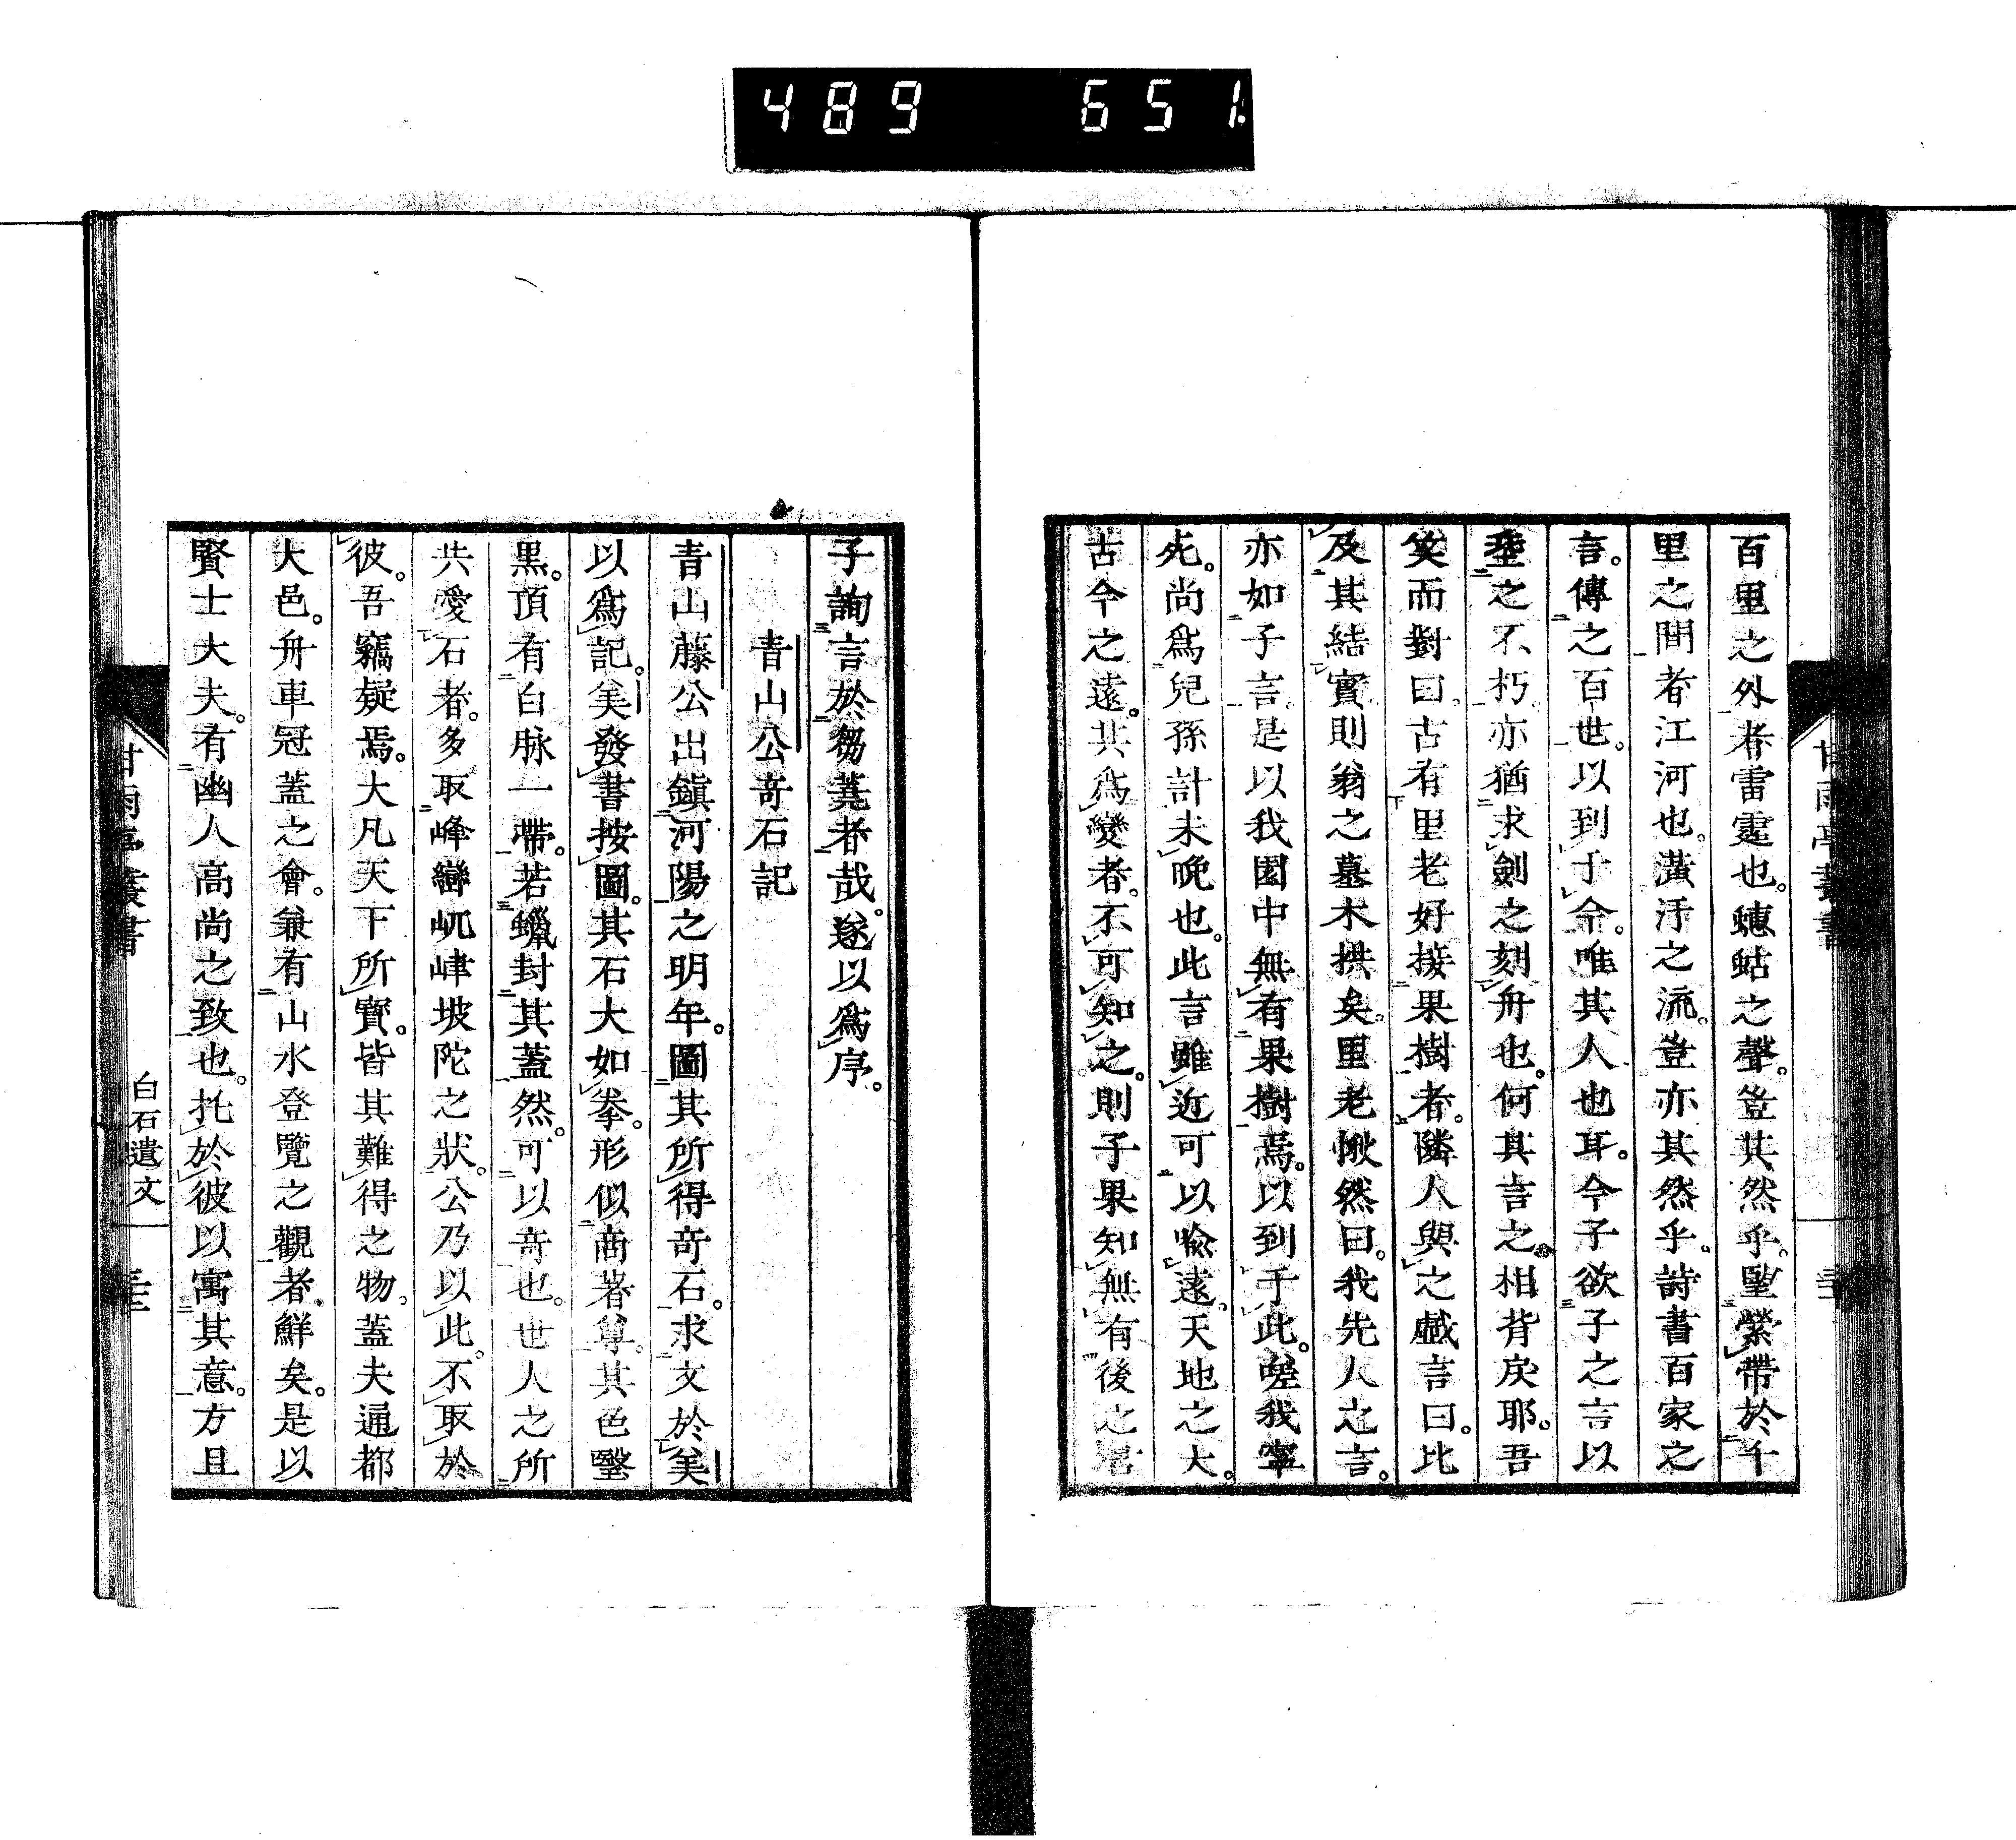 489 651
百里之外者雷霆也。蟪蛄之聲。豈其然乎。壐縈帶於千
里之間者江河也。潢汙之流。豈亦其然乎。詩書百家之
言。傳之百世。以到于今。唯其人也耳。今子欲子之言以
垂之不朽。亦猶求劍之刻舟也。何其言之相背戾耶。吾
笑而對曰。古有里老好接果樹者。隣人與之戲言曰。比
及其結實則翁之墓木拱矣。里老愀然曰。我先人之言。
亦如子言。是以我園中無有果樹焉。以到于此。嗟我寧
死。尚爲兒孫計未晩也。此言雖近可以喩遠。天地之大。
古今之遠。其爲變者。不可知之。則子果知無有後之
子詢言於芻蕘者哉。遂以爲序。
青山公奇石記
青山藤公出鎭河陽之明年。圖其所得奇石。求文於美
以爲記。美發書按圖。其石大如拳。形似商著尊。其色黳
黒。頂有白脉一帶。若蠟封其蓋然。可以奇也。世人之所
共愛石者。多取峰巒屼嵂坡陀之狀。公乃以此。不取於
彼。吾竊疑焉。大凡天下所寶。皆其難得之物。蓋夫通都
大邑。舟車冠蓋之會。兼有山水登覽之觀者。鮮矣。是以
賢士大夫。有幽人高尚之致也。托於彼以寓其意。方且
甘雨亭叢書
白石遺文